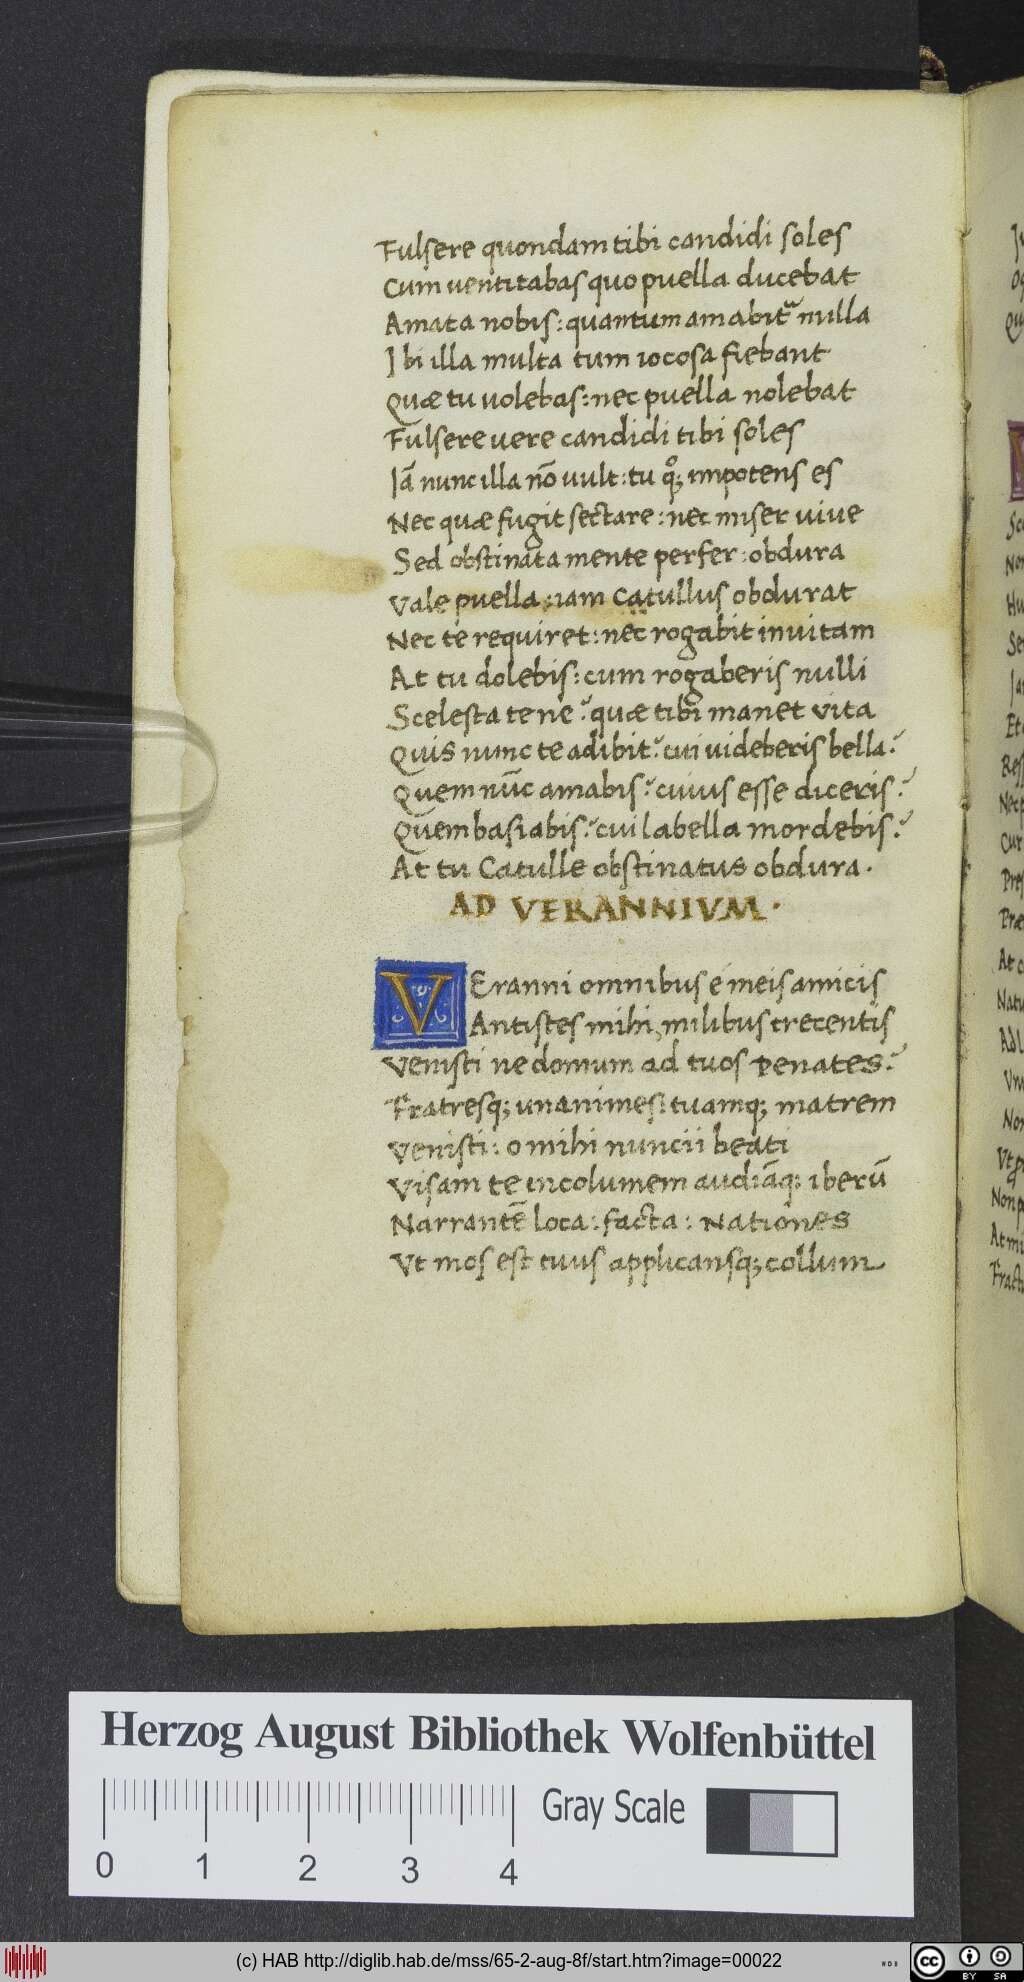 Fulsere quondam tibi candidi soles
Cum uentitabas quo puella ducebat
Amata nobis: quantum amabit᷑ nulla
Ibi illa multa tum iocosa fiebant
Quæ tu uolebas: nec puella nolebat
Fulsere uere candidi tibi soles
Iā nunc illa nō uult: tu qͦꝫ impotens es
Nec quæ fugit sectare: nec miser uiue
Sed obstinata mente perfer: obdura
Vale puella: iam Catullus obdurat
Nec te requiret: nec rogabit inuitam
At tu dolebis: cum rogaberis nulli
Scelesta te ne? quæ tibi manet vita
Quis nunc te adibit? cui uideberis bella?
Quem nūc amabis? cuius esse diceris?
Quem basiabis? cui labella mordebis?
At tu Catulle obstinatus obdura.
AD VERANNIVM.
VEranni omnibus é meis amicis
Antistes mihi, milibus trecentis
Venisti ne domum ad tuos Penates?
Fratresqꝫ unanimes: tuamqꝫ matrem
Venisti: o mihi nuncii beati
Visam te incolumem audiāqꝫ iberū
Narrantē loca: facta: Nationes
Vt mos est tuus applicansqꝫ collum
Herzog August Bibliothek Wolfenbüttel
0 1 2 3 4
Gray Scale
(c) HAB http://diglib.hab.de/mss/65-2-aug-8f/start.htm?image=00022
cc BY SA